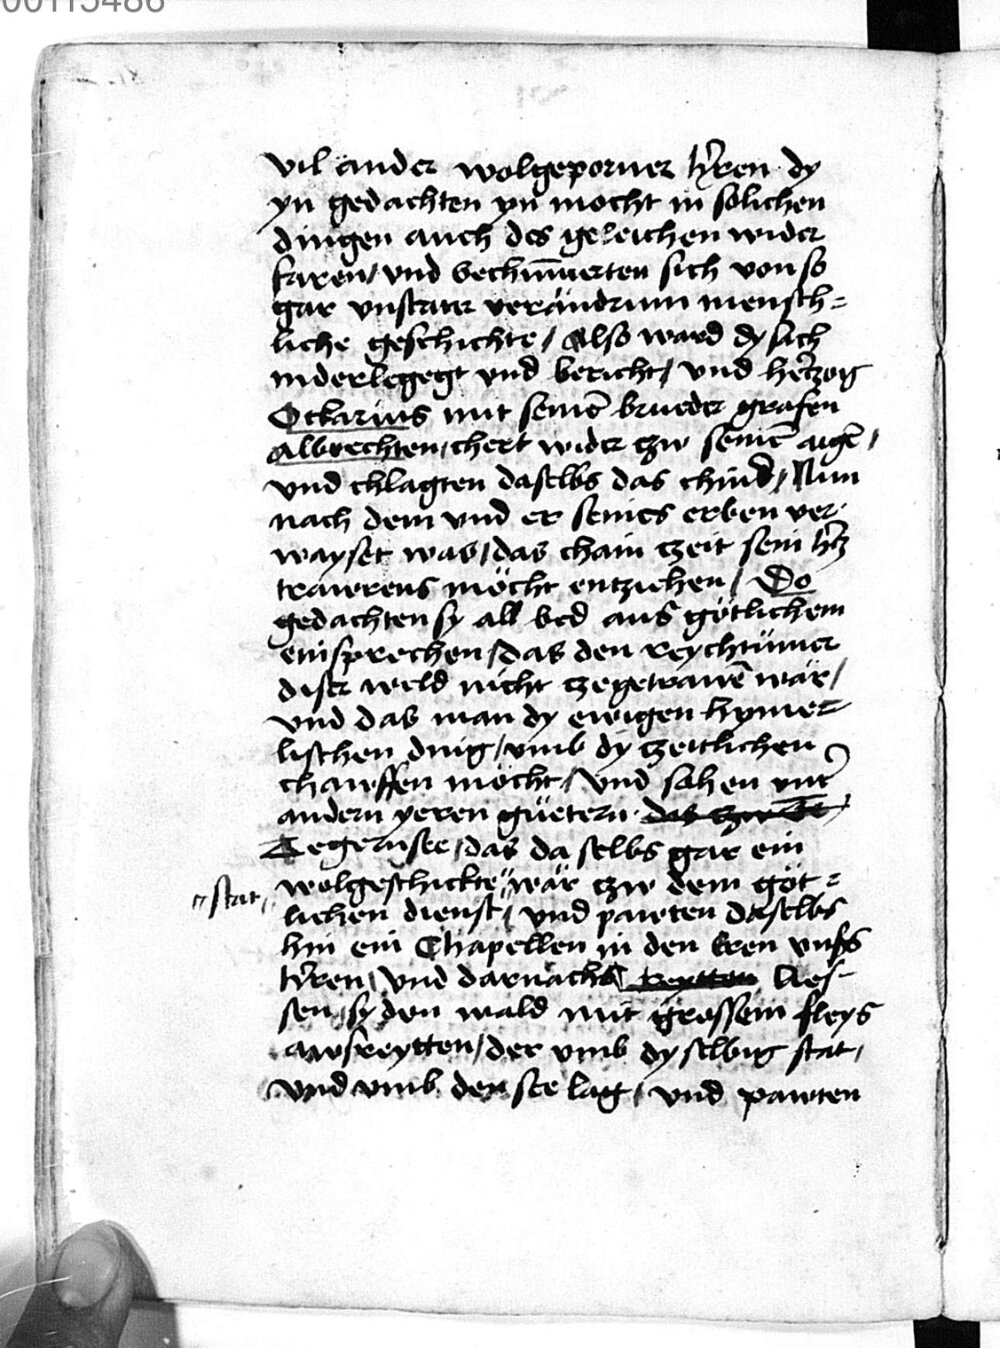 00115486
vil ander wolgeporner h̃ren dy
yn gedachten yn mocht in solichen
dingen auch des geleichen wider
faren / vnd bechüm̄erten sich von so
gar vnstater verändrum mensch=
liche geschichte / Also ward dy sach
niderlegegt vnd bericht / vnd hertzog
Ockarius mit seinē brueder grafen
Albrechten / chert wider czw seinē aigē /
vnd chlagten daselbs das chind / Nun
nach dem vnd er seines erben ver
wayset was / das chain czeit sein h̃tz
trawrens möcht entziehen / Do
gedachten sy all bed aus götlichem
einsprechen / das den reychtümer
diser weld nicht czegetrawē wär /
vnd das man dy ewigen hymer
lischen ding / vmb dy czeitlichen
chauffen möcht / Vnd sahen vnt̃
andern yeren güetern das czw Te
Tegernsee / das da selbs gar ein
wolgeschickte " wär czw dem göt=
" stat /
lichen dienst / vnd pawten daselbs
hin ein Chapellen in den Eren vnss
h̃ren / Vnd darnach reytten lies
sen sy den wald mit grossem fleys
awsreytten / der vmb dy selbig stat /
Vnd vmb den see lag / vnd pawten